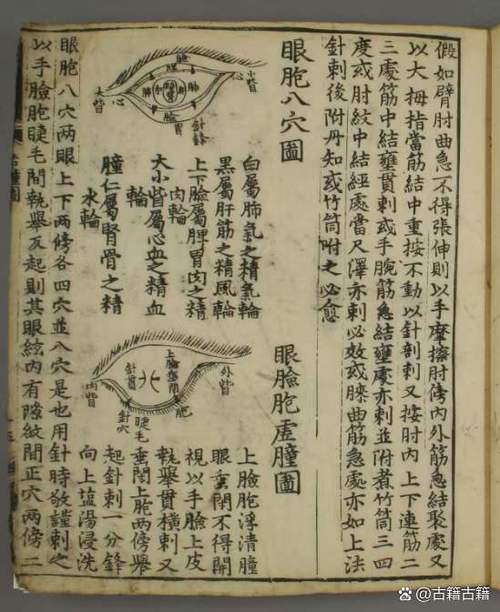 假如臂肘曲急不得張伸則以手摩擦肘傍內外筋急結聚處又
以大拇指當筋結中重按不動以針剖刺又按肘內上下連筋二
三處筋中結壅貫刺或手腕筋急結壅處亦刺並附煮竹筒三四
度或肘紋中結經處當尺澤亦刺必效或膝曲筋急處亦如上法
針刺後附丹知或竹筒附之必愈
眼胞八穴圖
小眥
心
大眥
心
胞
肺
肝
腎
脾
胃
針
白屬肺氣之精氣輪
黑屬肝筋之精風輪
上下臉屬脾胃肉之精
肉輪
大小眥屬心血之精血
輪
瞳仁屬腎骨之精
水輪
眼臉胞虛腫圖
外眥
上臉垂閉
內眥
針
胞
睫毛
針穴
上臉胞浮清腫
眼垂閉不得開
視以手臉上皮
執舉貫橫刺又
垂閉上胞兩傍舉
起針刺一分鋒
向上塩湯浸洗
眼胞八穴兩眼上下兩傍各四穴並八穴是也用針時敬謹刺之
以手臉胞睫毛間執舉反起則其眼絃內有隙紋間正穴兩傍二
古籍古籍